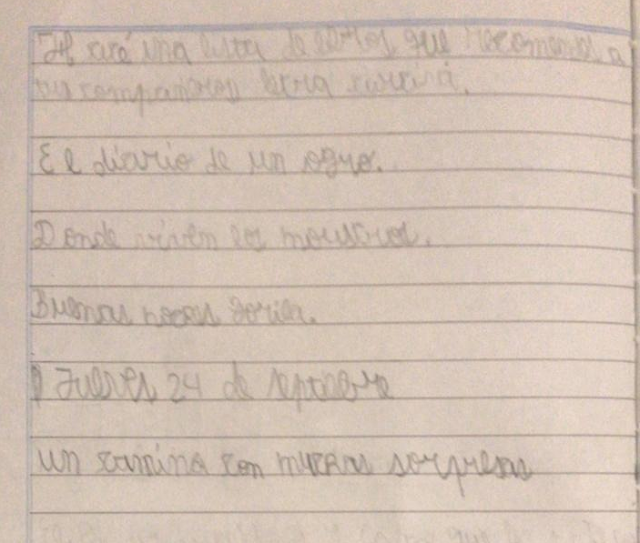 una lista de libros que recomendas a
tus companeros letra cursiva.
El diario de un ogro.
Donde viven los moustros.
Buenas noces Gorila.
Jueves 24 de septiembre
un camino con muchas sorpresas